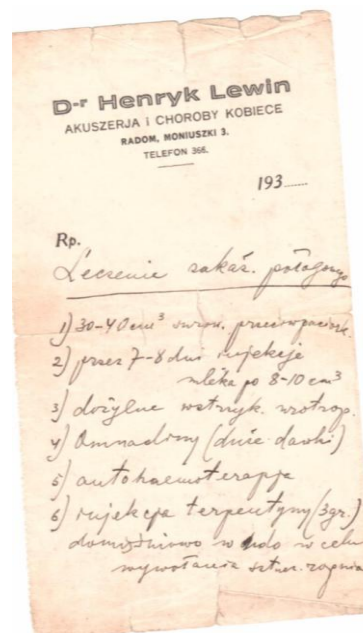 D-r Henryk Lewin
AKUSZERJA i CHOROBY KOBIECE
RADOM, MONIUSZKI 3.
TELEFON 366.
193......
Rp.
Leczenie zakaź. połogowego
1) 30-40 cm³ surow. przeciwpaciork.
2) przez 7-8 dni injekcje
mleka po 8-10 cm³
3) dożylne wstrzyk. urotrop.
4) Omnadiny (duże dawki)
5) autohaemoterapja
6) injekcja terpentyny (3gr.)
domięśniowo w udo w celu
wywołania sztucz. ropnia